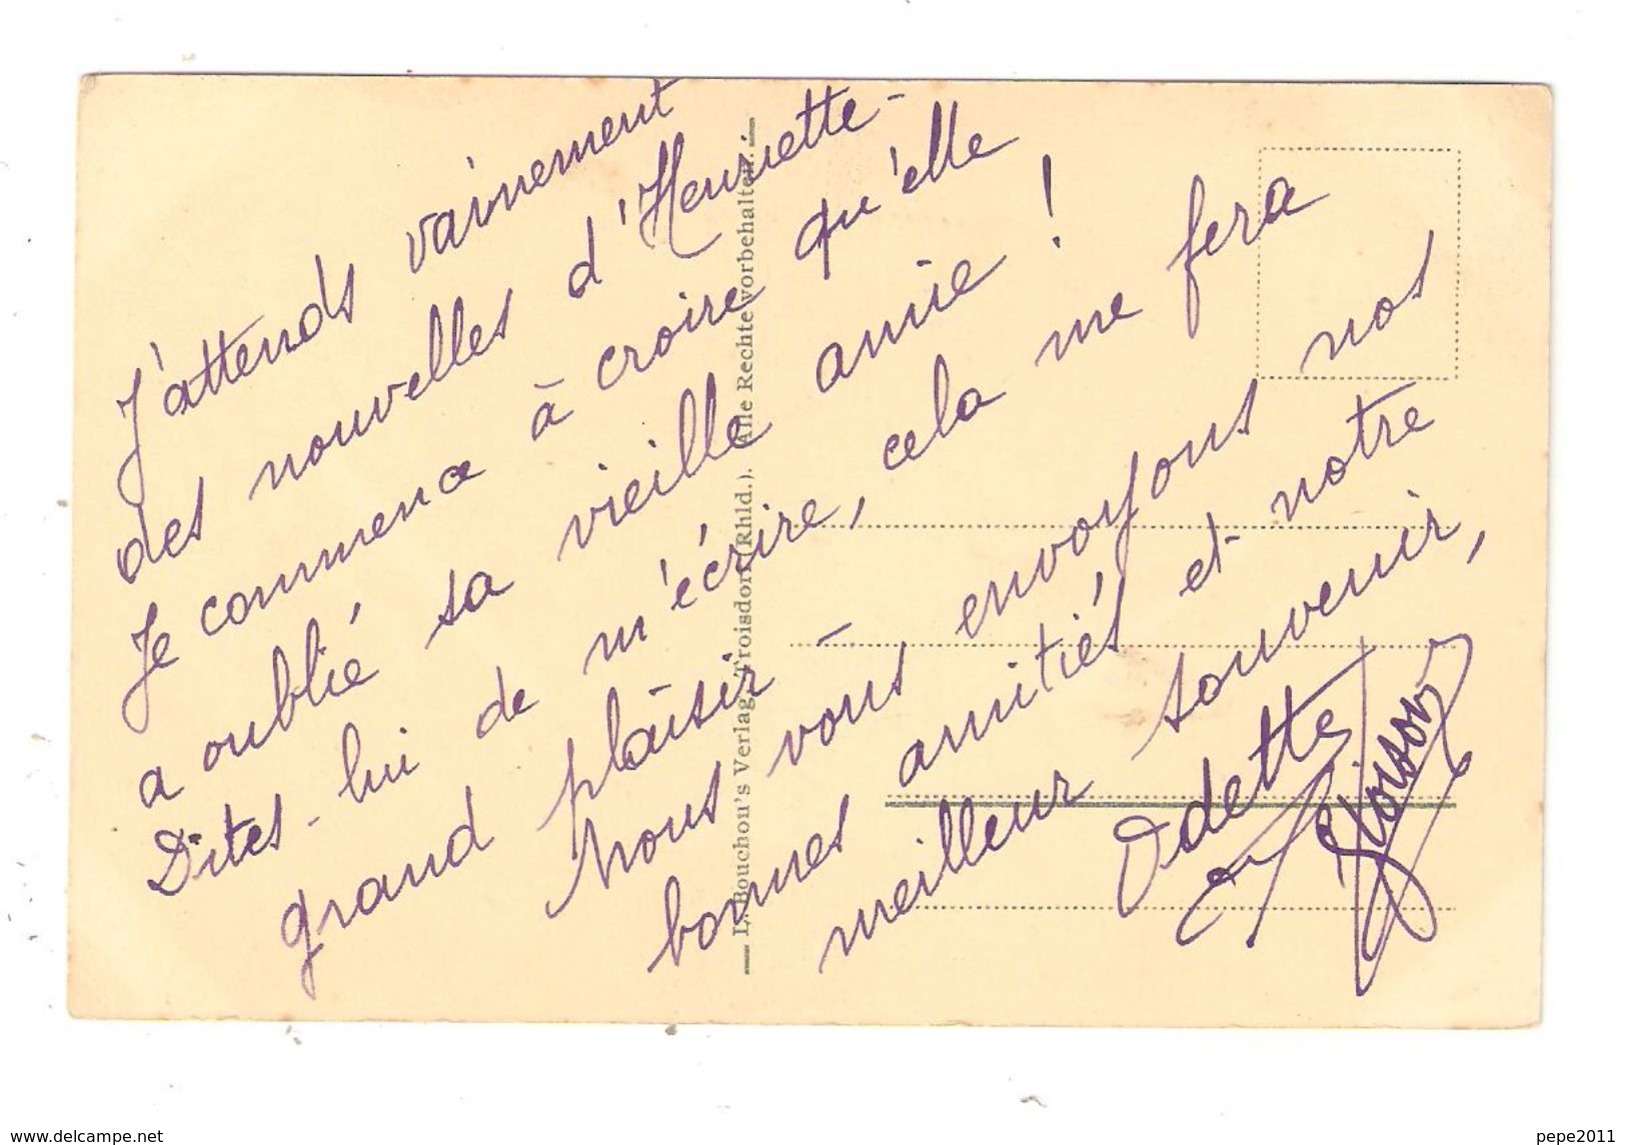 J'attends vainement
des nouvelles d'Henriette -
Je commence à croire qu'elle
a oublié sa vieille amie !
Dites-lui de m'écrire, cela me fera
grand plaisir -
Nous vous envoyons nos
bonnes amitiés et notre
meilleur souvenir,
Odette
L. Bouchou's Verlag, Troisdorf (Rhld.). Alle Rechte vorbehalten.
www.delcampe.net
pepe2011